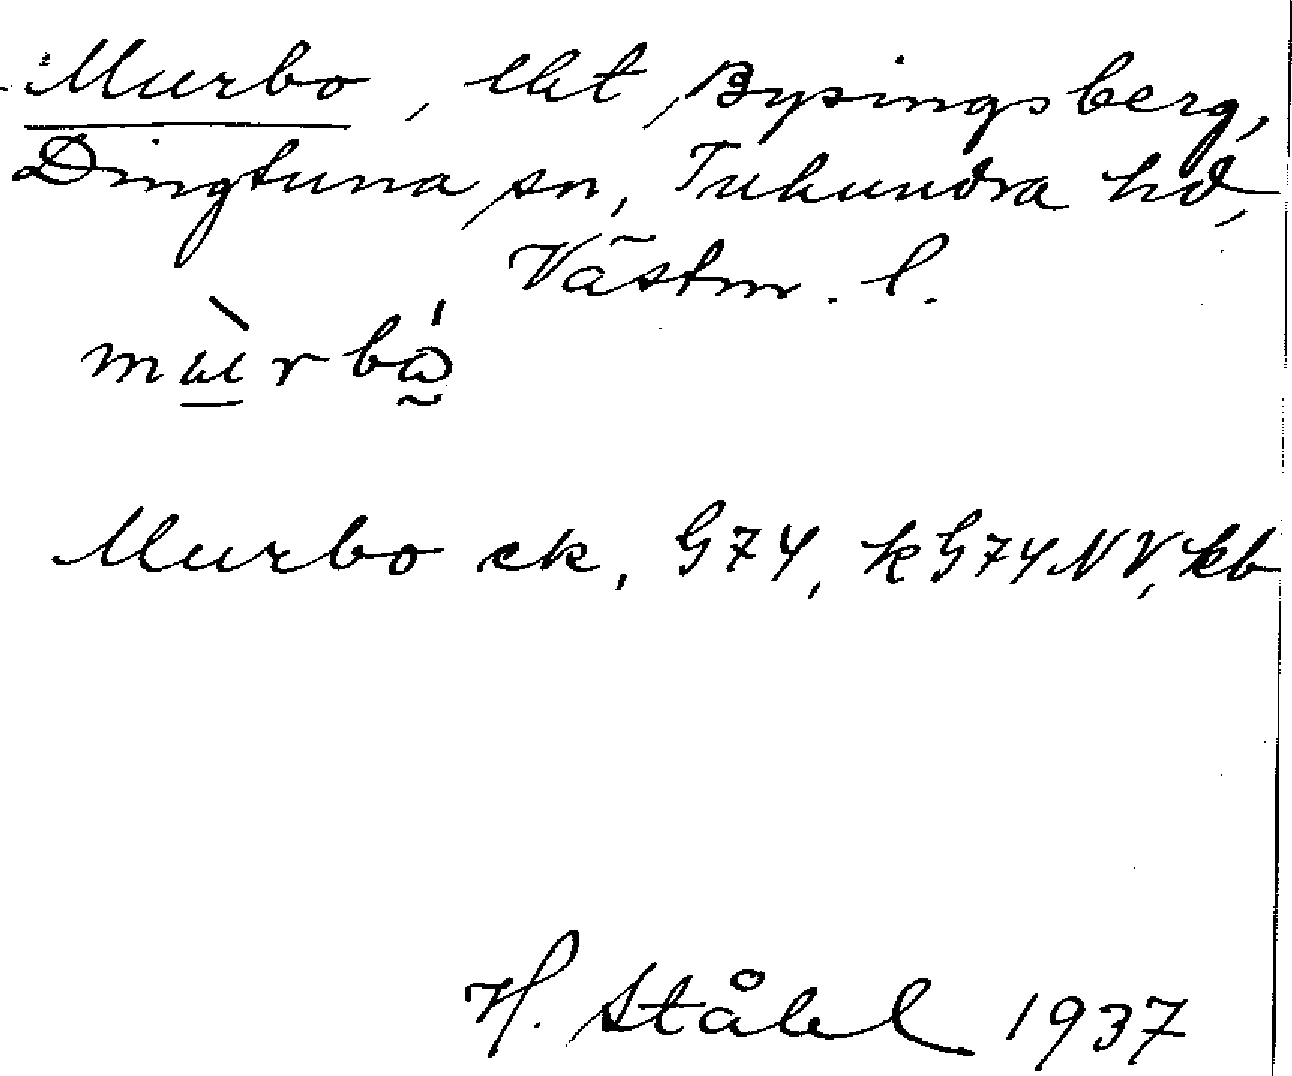 Murbo, lht, Bysingsberg,
Dingtuna sn, Tuhundra hd,
Västm. l.
mùrbǻ
Murbo ek, G74, kG74NV, kb
H. Ståhl 1937